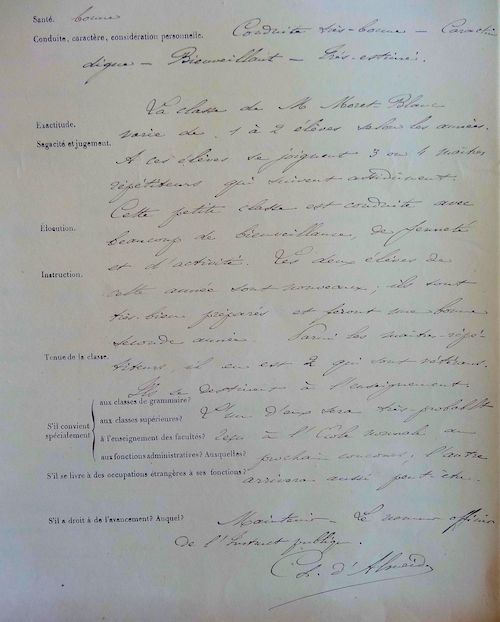 Santé. bonne
Conduite, caractère, considération personnelle. Conduite très-bonne – Caractè
digne – Bienveillant – très-estimé.
La classe de M Moret-Blanc
Exactitude.
varie de 1 à 2 élèves selon les années.
Sagacité et jugement.
A ces élèves se joignent 3 ou 4 maîtres
répétiteurs qui suivent assidûment.
Cette petite classe est conduite avec
Élocution.
beaucoup de bienveillance, de fermeté
et d'activité. Les deux élèves de
Instruction.
cette année sont nouveaux ; ils sont
très-bien préparés et feront une bonne
seconde année. Parmi les maîtres-répé-
Tenue de la classe.
titeurs, il en est 2 qui sont vétérans.
Ils se destinent à l'enseignement.
S'il convient spécialement
aux classes de grammaire?
L'un d'eux sera très probablt
aux classes supérieures?
à l'enseignement des facultés?
reçu à l'École normale au
aux fonctions administratives? Auxquelles?
prochain concours ; l'autre
S'il se livre à des occupations étrangères à ses fonctions?
arrivera aussi peut-être.
S'il a droit à de l'avancement? Auquel?
Maintenir – Le nommer officier
de l'Instruct publique.
Ch. d'Almeida